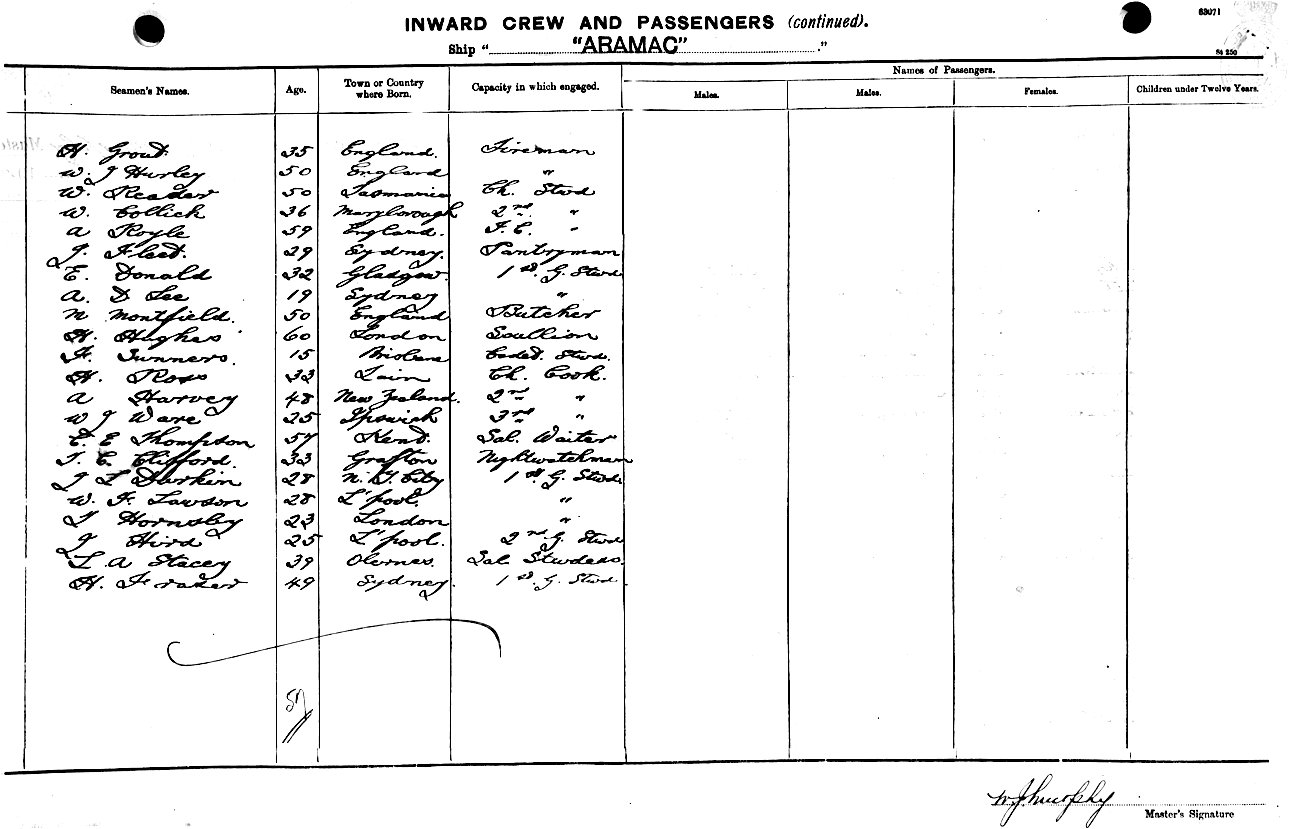 INWARD CREW AND PASSENGERS (continued).
63071
Ship " "ARAMAC" ."
Names of Passengers.
Seamen's Names. Age. Town or Country where Born. Capacity in which engaged. Males. Males. Females. Children under Twelve Years.
H. Grout 35 England. Fireman
W. J Hurley 50 England "
W. Reader 50 Tasmania Ch. Stwd
W. Collick 36 Maryborough 2nd "
A Royle 59 England. F.C. "
J. Fleet. 29 Sydney. Pantryman
E. Donald 32 Glasgow. 1st G. Stwd
A. D Lee 19 Sydney "
M Montfield. 50 England Butcher
H. Hughes 60 London Scullion
F. Gunners. 15 Brisbane Cadet. Stwd.
H. Ross 33 Ch. Cook.
A Harvey 48 New Zealand. 2nd "
W J Ware 25 Ipswich 3rd "
C. E Thompson 57 Kent. Sal. Waiter
T. C. Clifford. 33 Grafton Nightwatchman
J L Durkin 28 N. Y. City 1st G. Stwd
W. F. Lawson 28 L'pool. "
T Hornsby 23 London "
J Hird 25 L'pool. 2nd G. Stwd
L A Stacey 39 Sal. Stwdess.
H. Frazer 49 Sydney. 1st G. Stwd
57
W. J. Murphy
Master's Signature